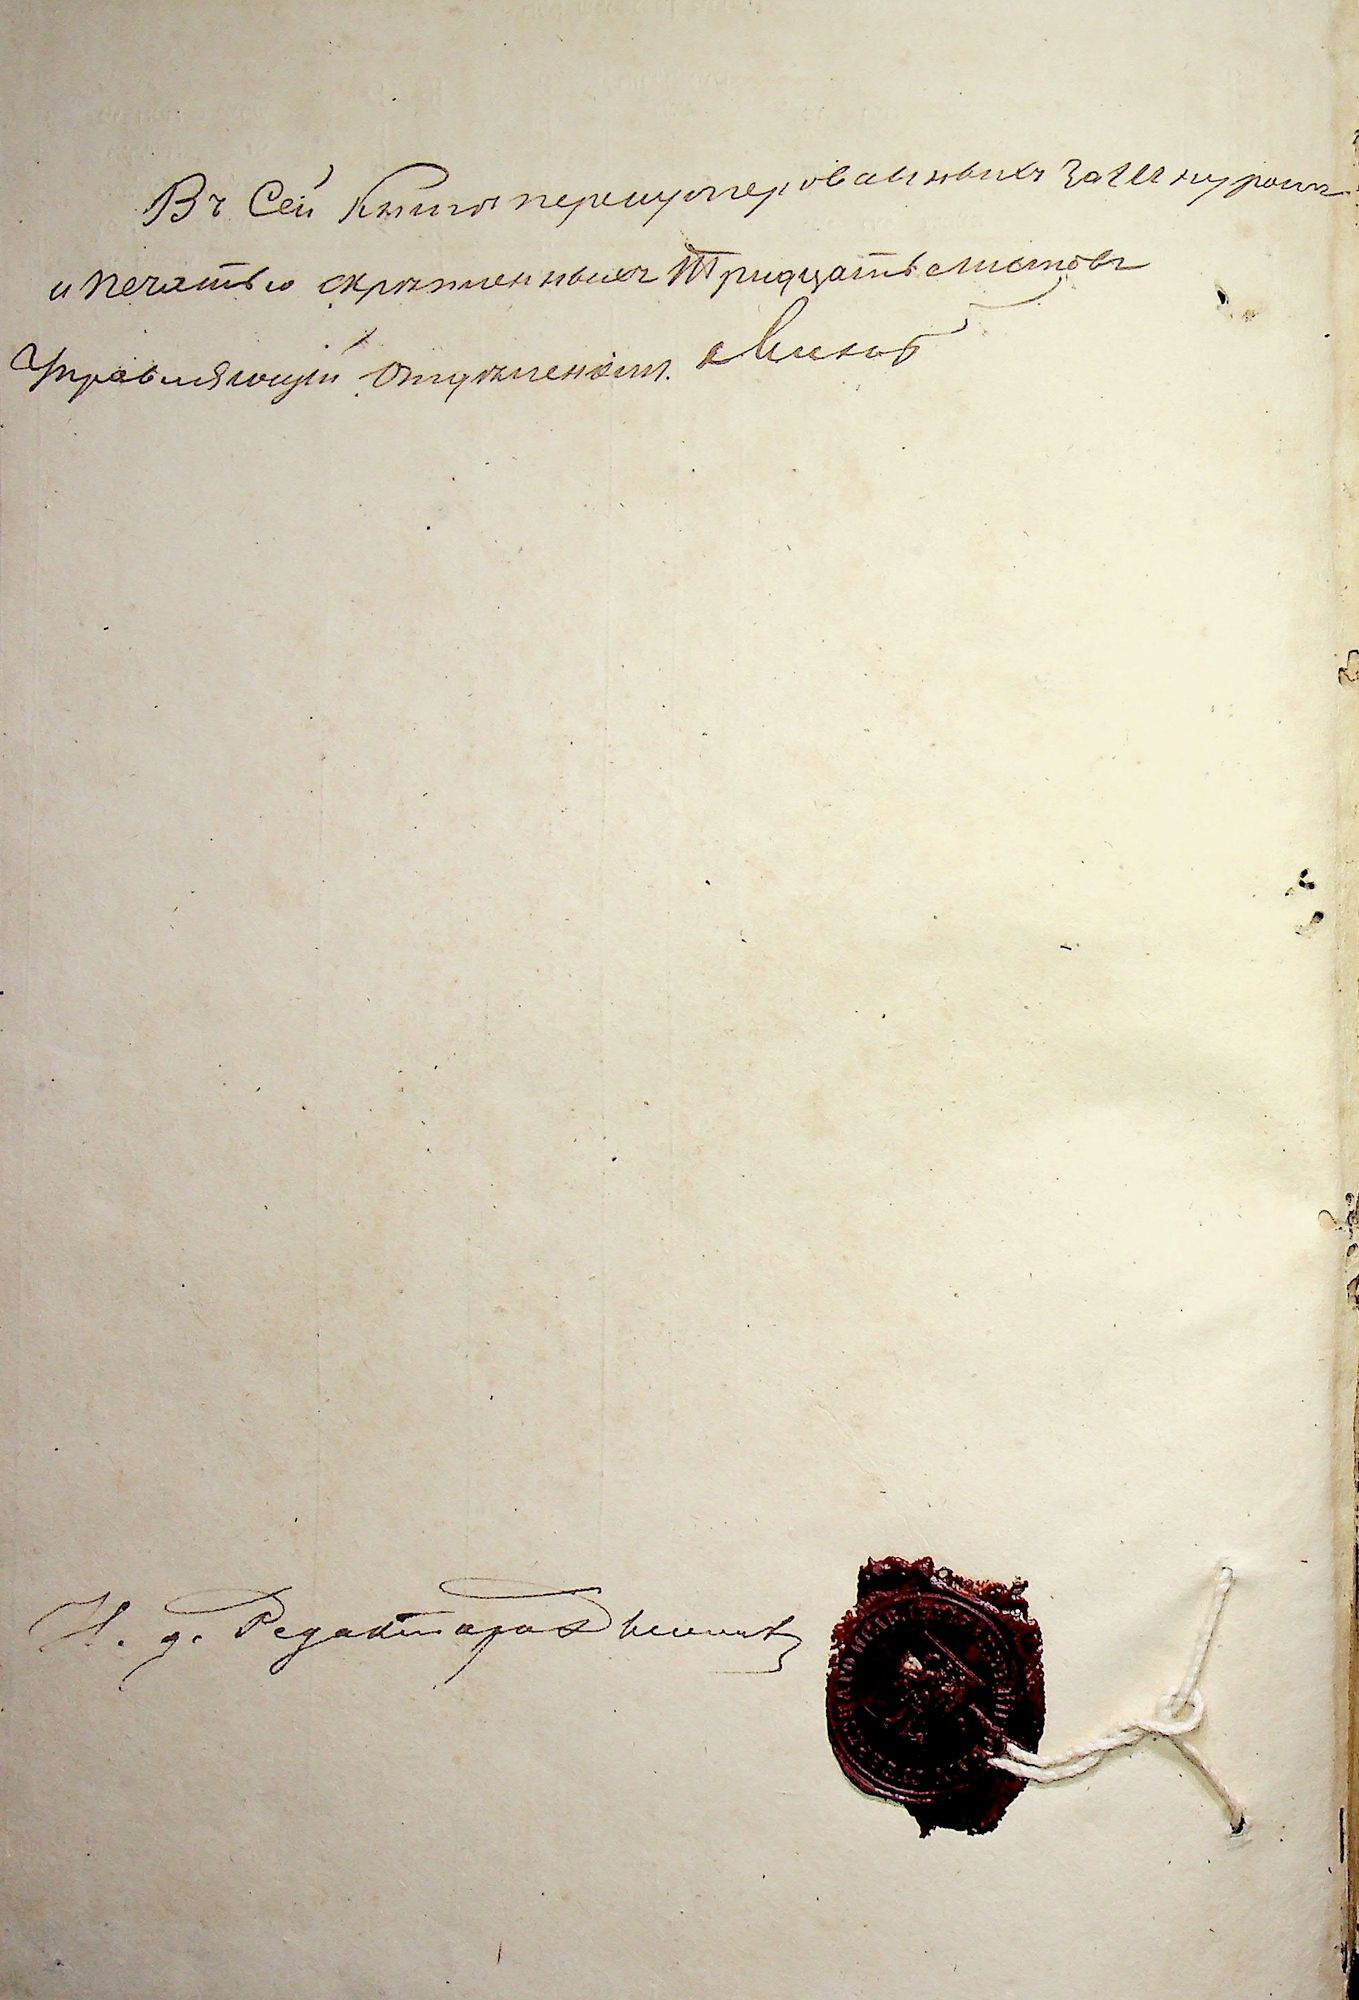 Въ сей книгѣ перенумерованныхъ за шнуромъ
и печатью скрѣпленныхъ тридцать листовъ
Управляющій Отдѣленіемъ
И. д. Редактора